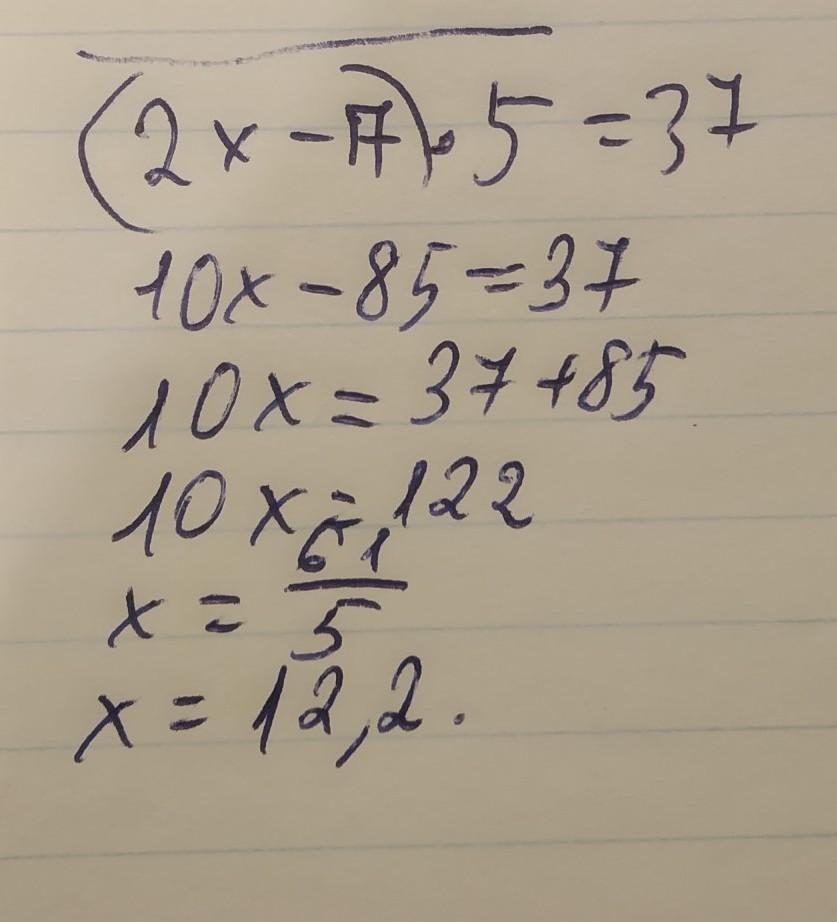 (2x-17)·5=37
10x-85=37
10x=37+85
10x=122
x=61/5
x=12,2.